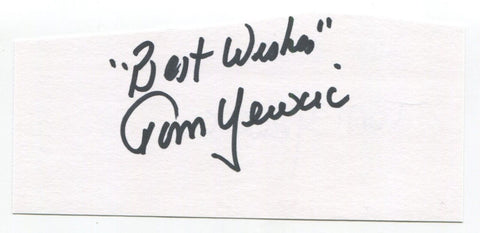 "Best Wishes"
Tom Yewcic